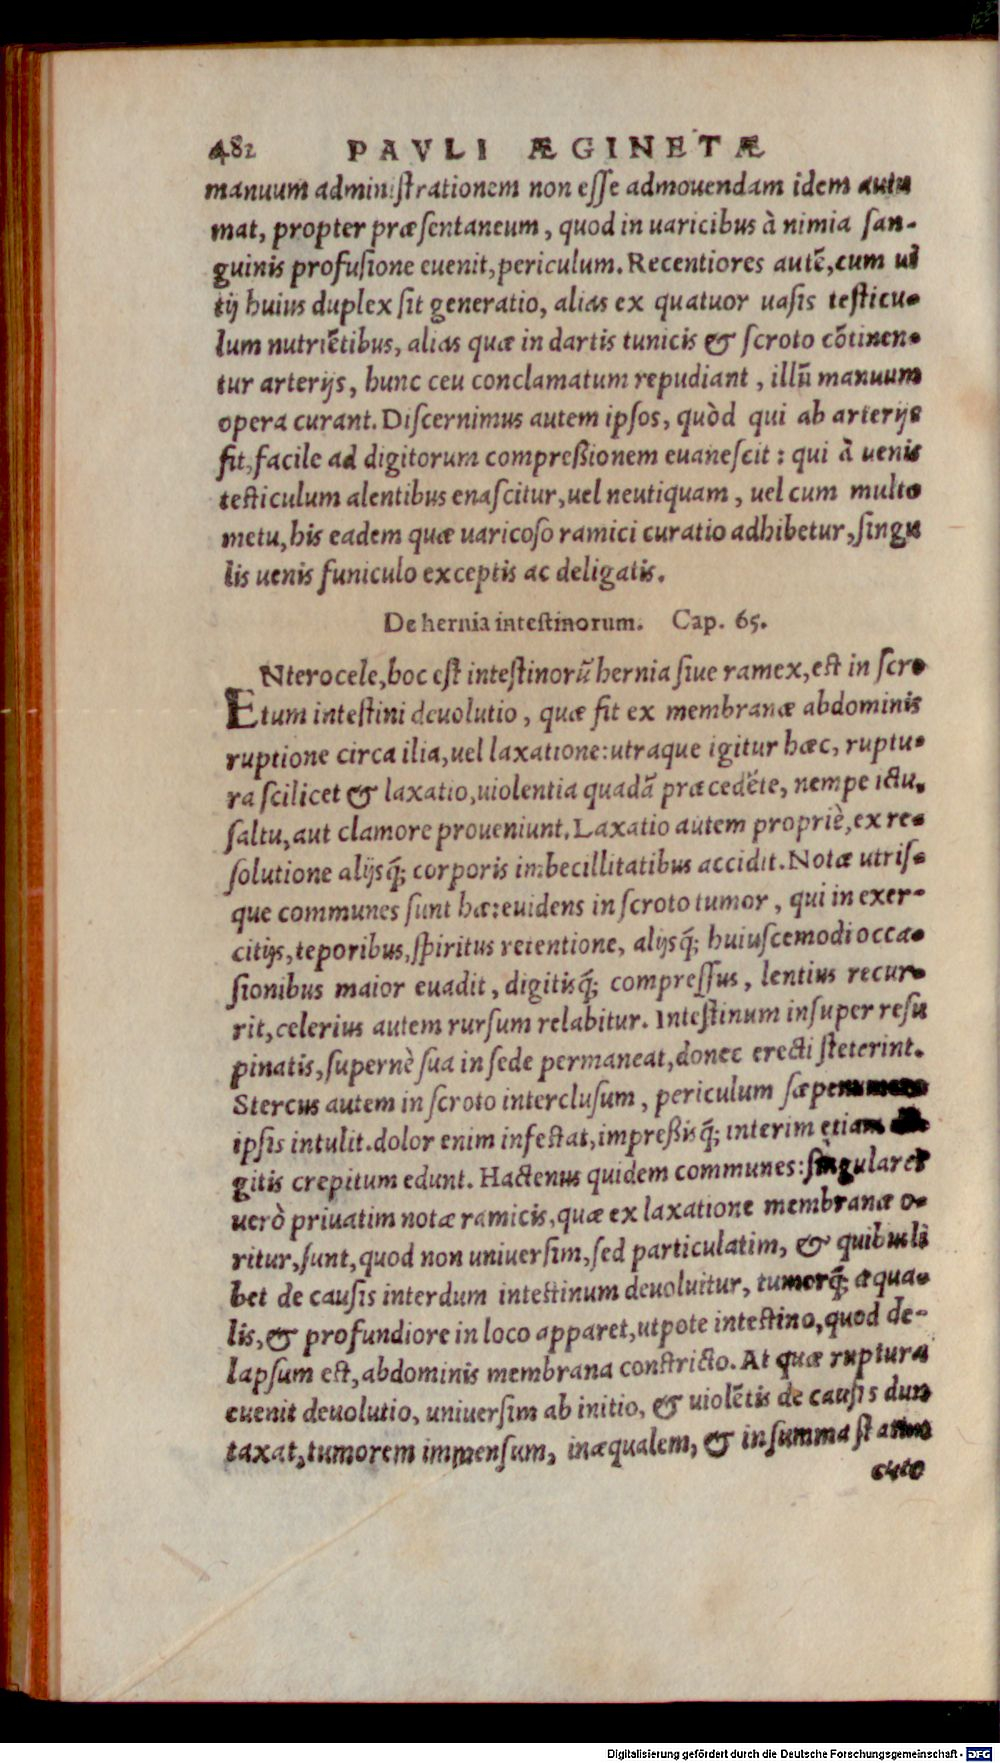 482 PAVLI ÆGINETÆ
manuum administrationem non esse admouendam idem autu
mat, propter præsentaneum, quod in uaricibus à nimia san-
guinis profusione euenit, periculum. Recentiores autẽ, cum ui
tij huius duplex sit generatio, alias ex quatuor uasis testicu-
lum nutriẽtibus, alias quæ in dartis tunicis & scroto cõtinen-
tur arterijs, hunc ceu conclamatum repudiant, illũ manuum
opera curant. Discernimus autem ipsos, quòd qui ab arterijs
fit, facile ad digitorum compreßionem euanescit: qui à uenis
testiculum alentibus enascitur, uel neutiquam, uel cum multo
metu, his eadem quæ uaricoso ramici curatio adhibetur, singu
lis uenis funiculo exceptis ac deligatis.
De hernia intestinorum. Cap. 65.
ENterocele, hoc est intestinorũ hernia siue ramex, est in scro
tum intestini deuolutio, quæ fit ex membranæ abdominis
ruptione circa ilia, uel laxatione: utraque igitur hæc, ruptu-
ra scilicet & laxatio, uiolentia quadã præcedẽte, nempe ictu,
saltu, aut clamore proueniunt. Laxatio autem propriè, ex re-
solutione alijsq́; corporis imbecillitatibus accidit. Notæ utris-
que communes sunt hæ: euidens in scroto tumor, qui in exer-
citijs, teporibus, spiritus retentione, alijsq́; huiuscemodi occa-
sionibus maior euadit, digitisq́; compressus, lentius recur-
rit, celerius autem rursum relabitur. Intestinum insuper resu
pinatis, supernè sua in sede permaneat, donec erecti steterint.
Stercus autem in scroto interclusum, periculum sæpenumero
ipsis intulit. dolor enim infestat, impreßisq́; interim etiam
gitis crepitum edunt. Hactenus quidem communes: singulares
uerò priuatim notæ ramicis, quæ ex laxatione membranæ o-
ritur, sunt, quod non uniuersim, sed particulatim, & quibusli
bet de causis interdum intestinum deuoluitur, tumorq́; æqua-
lis, & profundiore in loco apparet, utpote intestino, quod de-
lapsum est, abdominis membrana constricto. At quæ ruptura
euenit deuolutio, uniuersim ab initio, & uiolẽtis de causis dun
taxat, tumorem immensum, inæqualem, & in summa statim
cute
Digitalisierung gefördert durch die Deutsche Forschungsgemeinschaft - DFG